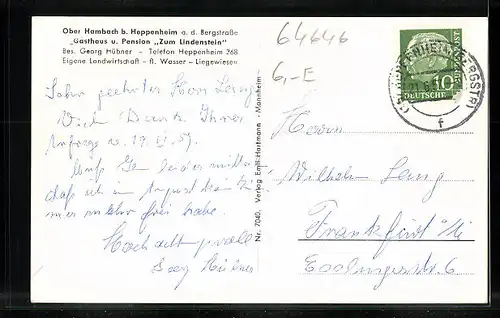 Ober Hambach b. Heppenheim a. d. Bergstraße
Gasthaus u. Pension „Zum Lindenstein“
Bes. Georg Hübner – Telefon Heppenheim 268
Eigene Landwirtschaft – fl. Wasser – Liegewiesen
Sehr geehrter Herr Lang
Vielen Dank Ihrer
Anfrage
muß Ihnen leider mitteilen
daß ich im August kein Zim
mer mehr frei habe.
Hochachtungsvoll
Georg Hübner
Nr. 7040. Verlag Emil Hartmann - Mannheim -
64646
6,-E
10
DEUTSCHE
BUNDESPOST
(BERGSTR)
f
Herrn
Wilhelm Lang
Frankfurt a/M
6